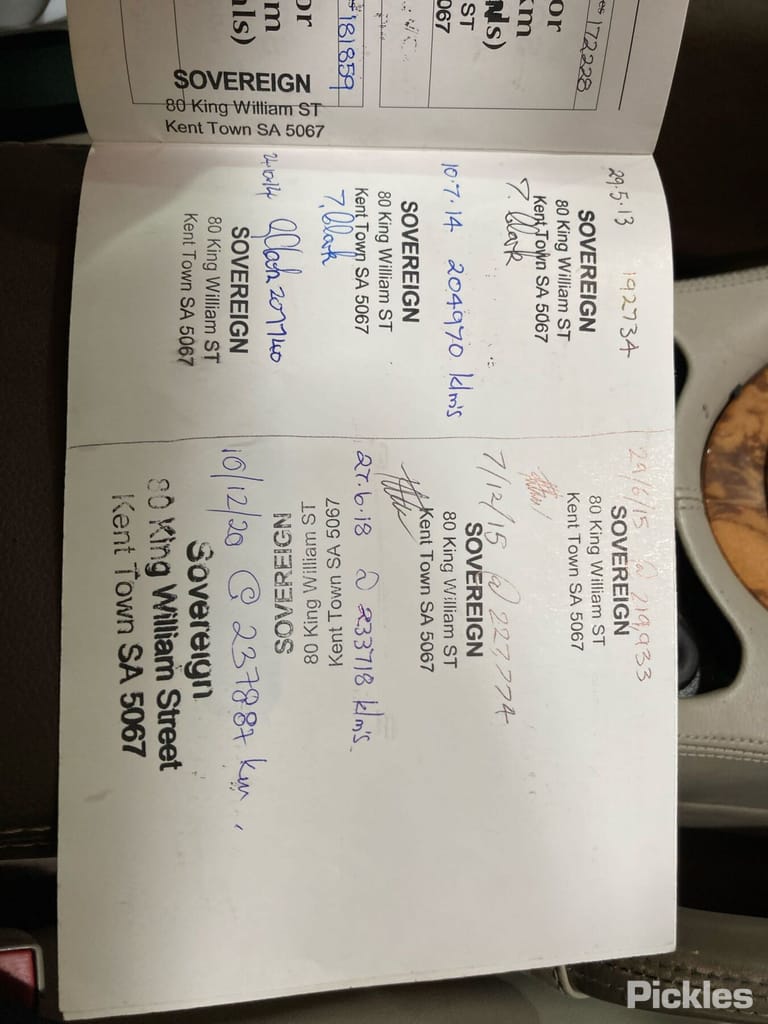 or
km
ls)
172228
ST
067
or
m
als)
181859
SOVEREIGN
80 King William ST
Kent Town SA 5067
29.5.13 192734
SOVEREIGN
80 King William ST
Kent Town SA 5067
T. Clark
10.7.14 204970 klm's
SOVEREIGN
80 King William ST
Kent Town SA 5067
T. Clark
207740
SOVEREIGN
80 King William ST
Kent Town SA 5067
29/6/15 @ 219,933
SOVEREIGN
80 King William ST
Kent Town SA 5067
7/12/15 @ 223774
SOVEREIGN
80 King William ST
Kent Town SA 5067
27.6.18 @ 233718 klm's
Kent Town SA 5067
80 King William ST
SOVEREIGN
10/12/20 @ 237887 km.
Sovereign
80 King William Street
Kent Town SA 5067
Pickles